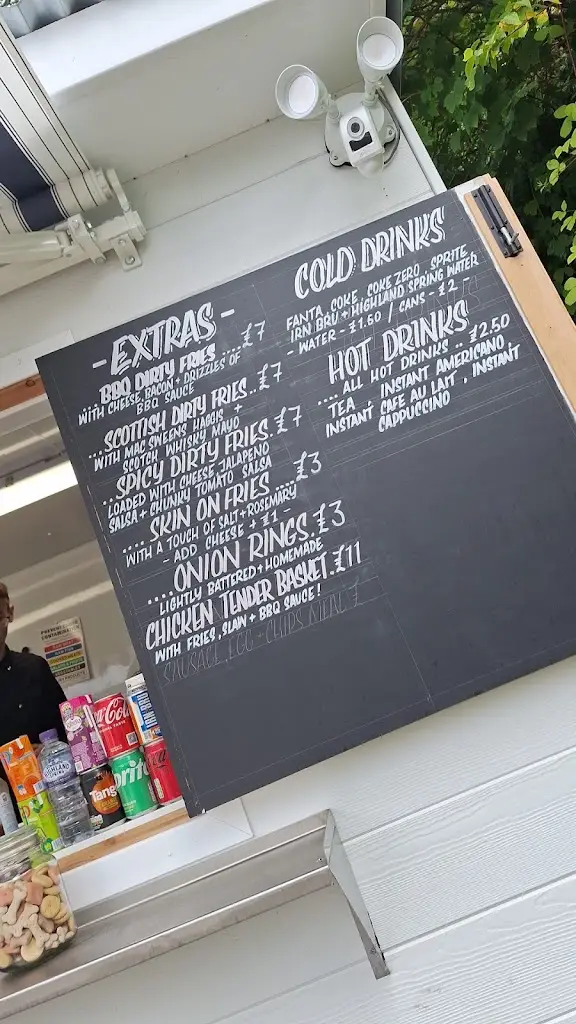 - EXTRAS -
BBQ DIRTY FRIES....£7
WITH CHEESE, BACON + DRIZZLES OF
BBQ SAUCE
...SCOTTISH DIRTY FRIES..£7
WITH MAC SWEENS HAGGIS +
SCOTCH WHISKY MAYO
..SPICY DIRTY FRIES.£7
LOADED WITH CHEESE, JALAPENO
SALSA + CHUNKY TOMATO SALSA
.... SKIN ON FRIES ....£3
WITH A TOUCH OF SALT + ROSEMARY
- ADD CHEESE + £1 -
.....ONION RINGS.£3
LIGHTLY BATTERED + HOMEMADE
CHICKEN TENDER BASKET.£11
WITH FRIES, SLAW + BBQ SAUCE!
SAUSAGE, EGG + CHIPS MEAL £
COLD DRINKS
FANTA, COKE, COKE ZERO, SPRITE
IRN BRU + HIGHLAND SPRING WATER
- WATER - £1.50 / CANS - £2
HOT DRINKS
.... ALL HOT DRINKS .. £2.50
TEA, INSTANT AMERICANO,
INSTANT CAFE AU LAIT, INSTANT
CAPPUCCINO
CONTAMINATION
Coca-Cola
HIGHLAND
SPRING
Tang
Sprite